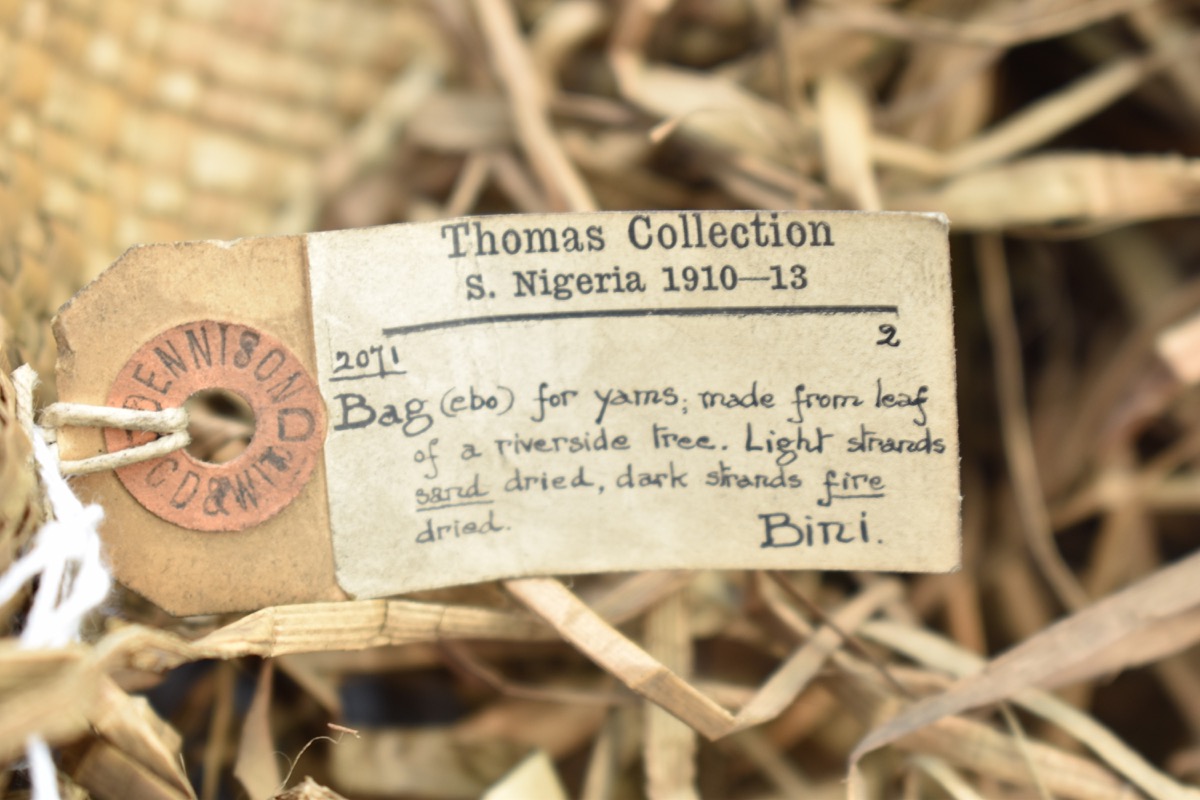 Thomas Collection
S. Nigeria 1910—13
2071 2
Bag (ebo) for yams; made from leaf
of a riverside tree. Light strands
sand dried, dark strands fire
dried. Bini.
DENNISON